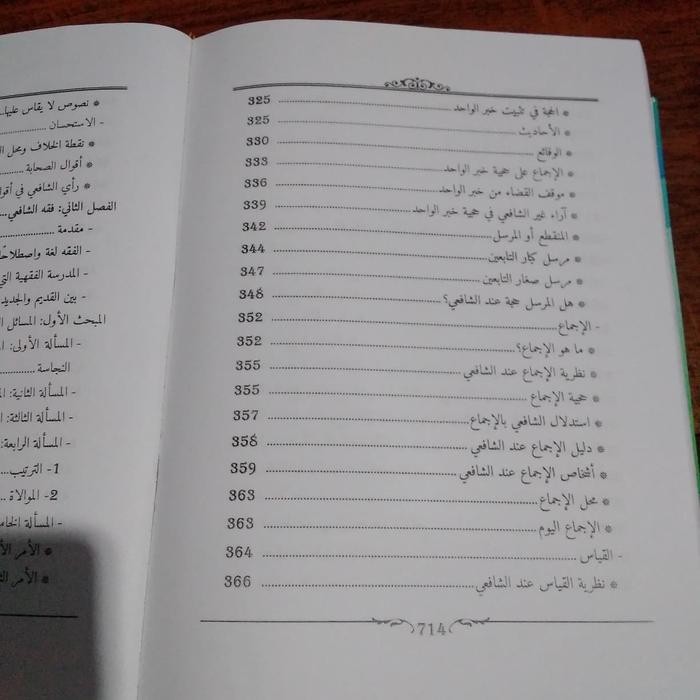 * الحجة في تثبيت خبر الواحد ........ 325
* الأحاديث ........ 325
* الوقائع ........ 330
* الإجماع على حجية خبر الواحد ........ 333
* موقف القضاء من خبر الواحد ........ 336
* آراء غير الشافعي في حجية خبر الواحد ........ 339
* المنقطع أو المرسل ........ 342
* مرسل كبار التابعين ........ 344
* مرسل صغار التابعين ........ 347
* هل المرسل حجة عند الشافعي؟ ........ 348
- الإجماع ........ 352
* ما هو الإجماع؟ ........ 352
* نظرية الإجماع عند الشافعي ........ 355
* حجية الإجماع ........ 355
* استدلال الشافعي بالإجماع ........ 357
* دليل الإجماع عند الشافعي ........ 358
* أشخاص الإجماع عند الشافعي ........ 359
* محل الإجماع ........ 363
* الإجماع اليوم ........ 363
- القياس ........ 364
* نظرية القياس عند الشافعي ........ 366
714
* نصوص لا يقاس عليها
- الاستحسان ........
* نقطة الخلاف ومحل
* أقوال الصحابة ........
* رأي الشافعي في
الفصل الثاني: فقه الشافعي
- مقدمة ........
- الفقه لغة واصطلاحًا
- المدرسة الفقهية
- بين القديم والجديد
المبحث الأول: المسائل
- المسألة الأولى:
النجاسة ........
- المسألة الثانية:
- المسألة الثالثة:
- المسألة الرابعة:
1- الترتيب ...
2- الموالاة ..
- المسألة
* الأمر
* الأمر